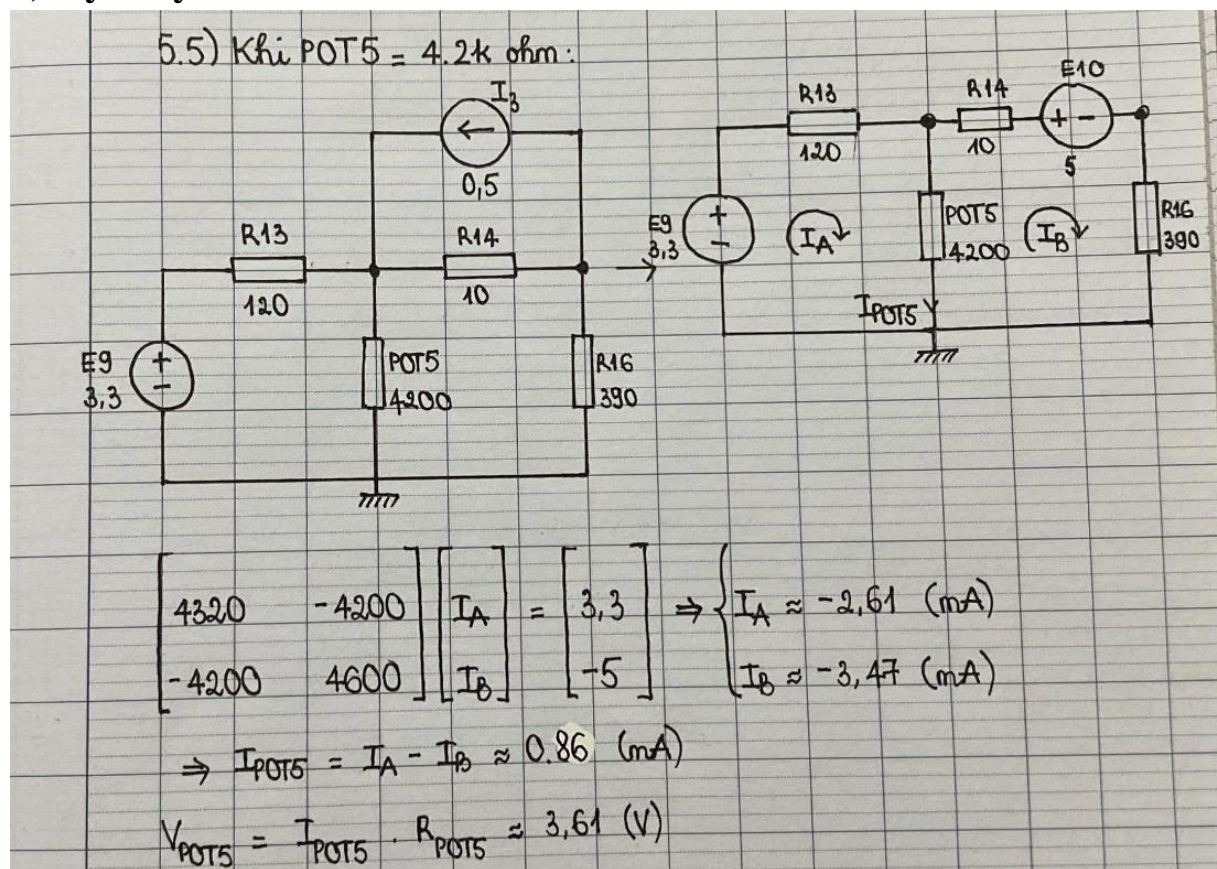 5.5) Khi POT5 = 4.2k ohm:
I3
0,5
R13
120
R14
10
E9
3,3
POT5
4200
R16
390
R13
120
R14
10
E10
5
E9
3,3
IA
POT5
4200
IB
R16
390
IPOT5
[4320 -4200] [IA] = [3,3] ⇒ { IA ≈ -2,61 (mA)
[-4200 4600] [IB] [-5] { IB ≈ -3,47 (mA)
⇒ IPOT5 = IA - IB ≈ 0.86 (mA)
VPOT5 = IPOT5 . RPOT5 ≈ 3,61 (V)